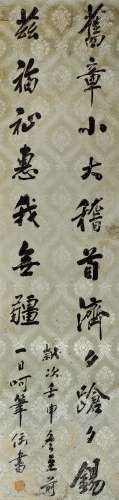 舊章小大稽首濟々蹌々錫
茲福祉惠我無疆
歲次壬申冬至前
一日呵筆書